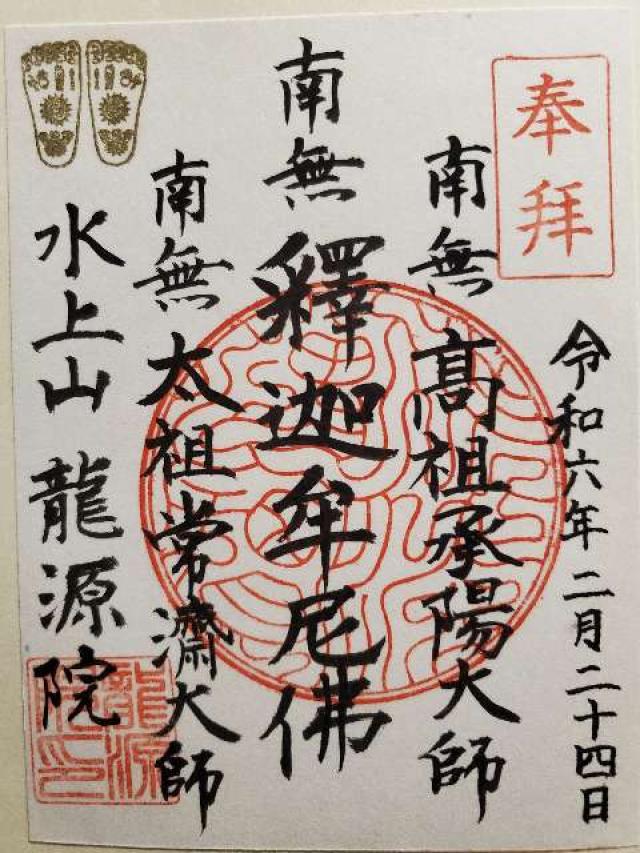 奉拝
令和六年二月二十四日
南無高祖承陽大師
南無釋迦牟尼佛
南無太祖常濟大師
水上山龍源院
龍源院印